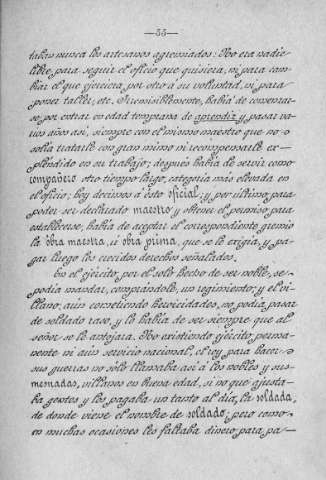 —33—
taban nunca los artesanos agremiados: No era nadie
libre para seguir el oficio que quisiera, ni para cam-
biar el que ejerciera por otro á su voluntad, ni para
poner taller, etc. Irremisiblemente, había de comenzar-
se por entrar en edad temprana de aprendiz y pasar va-
rios años así, siempre con el mismo maestro que no
solía tratarle con gran mimo ni recompensarle ex-
pléndido en su trabajo; después había de servir como
compañero otro tiempo largo, categoría más elevada en
el oficio; hoy decimos á ésto oficial; y por último para
poder ser declarado maestro y obtener el permiso para
establecerse, había de aceptar el correspondiente gremio
la obra maestra, ú obra prima, que se le exigía, y pa-
gar luego los crecidos derechos señalados.
En el ejército, por el solo hecho de ser noble, se
podía mandar, comprándole, un regimiento; y el vi-
llano, aún cometiendo heroicidades, no podía pasar
de soldado raso, y lo había de ser siempre que al
señor se le antojara. No existiendo ejército perma-
nente ni aún servicio nacional, el rey para hacer
sus guerras no sólo llamaba así á los nobles y sus
mesnadas, villanos en buena edad, si no que ajusta-
ba gentes y los pagaba un tanto al día, la soldada,
de donde viene el nombre de soldado; pero como
en muchas ocasiones les faltaba dinero para pa-